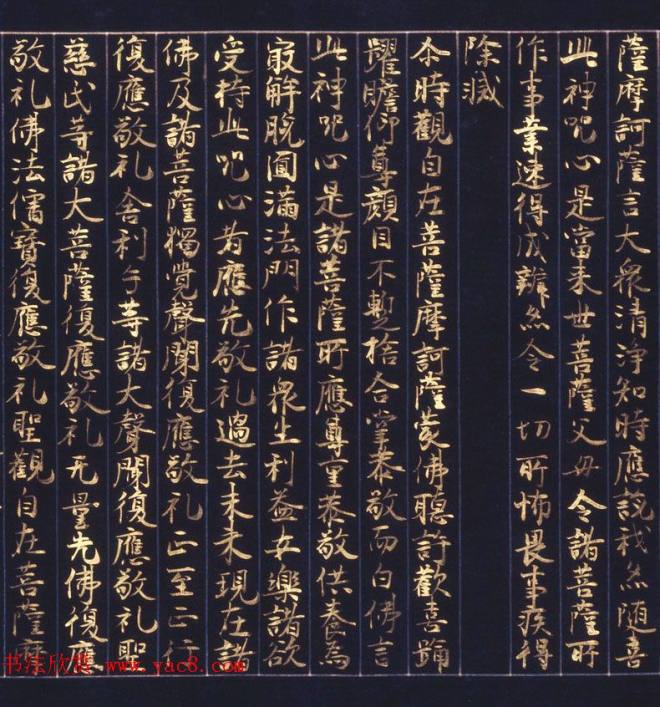 薩摩訶薩言大衆清淨知時應説我然随喜
此神咒心是當来世菩薩父毋令諸菩薩所
作事業速得成辦然令一切所怖畏事疾得
除滅
尒時觀自在菩薩摩訶薩蒙佛聽許歡喜踊
躍瞻仰尊顔目不蹔捨合掌恭敬而白佛言
此神咒心是諸菩薩所應尊重恭敬供養為
㝡解脱圓滿法門作諸衆生利益安樂諸欲
受持此咒心者應先敬礼過去未来現在諸
佛及諸菩薩獨覺聲聞復應敬礼正至正行
復應敬礼舍利子等諸大聲聞復應敬礼聖
慈氏等諸大菩薩復應敬礼无量先佛復應
敬礼佛法僧寶復應敬礼聖觀自在菩薩摩
书法欣赏 www.yac8.com